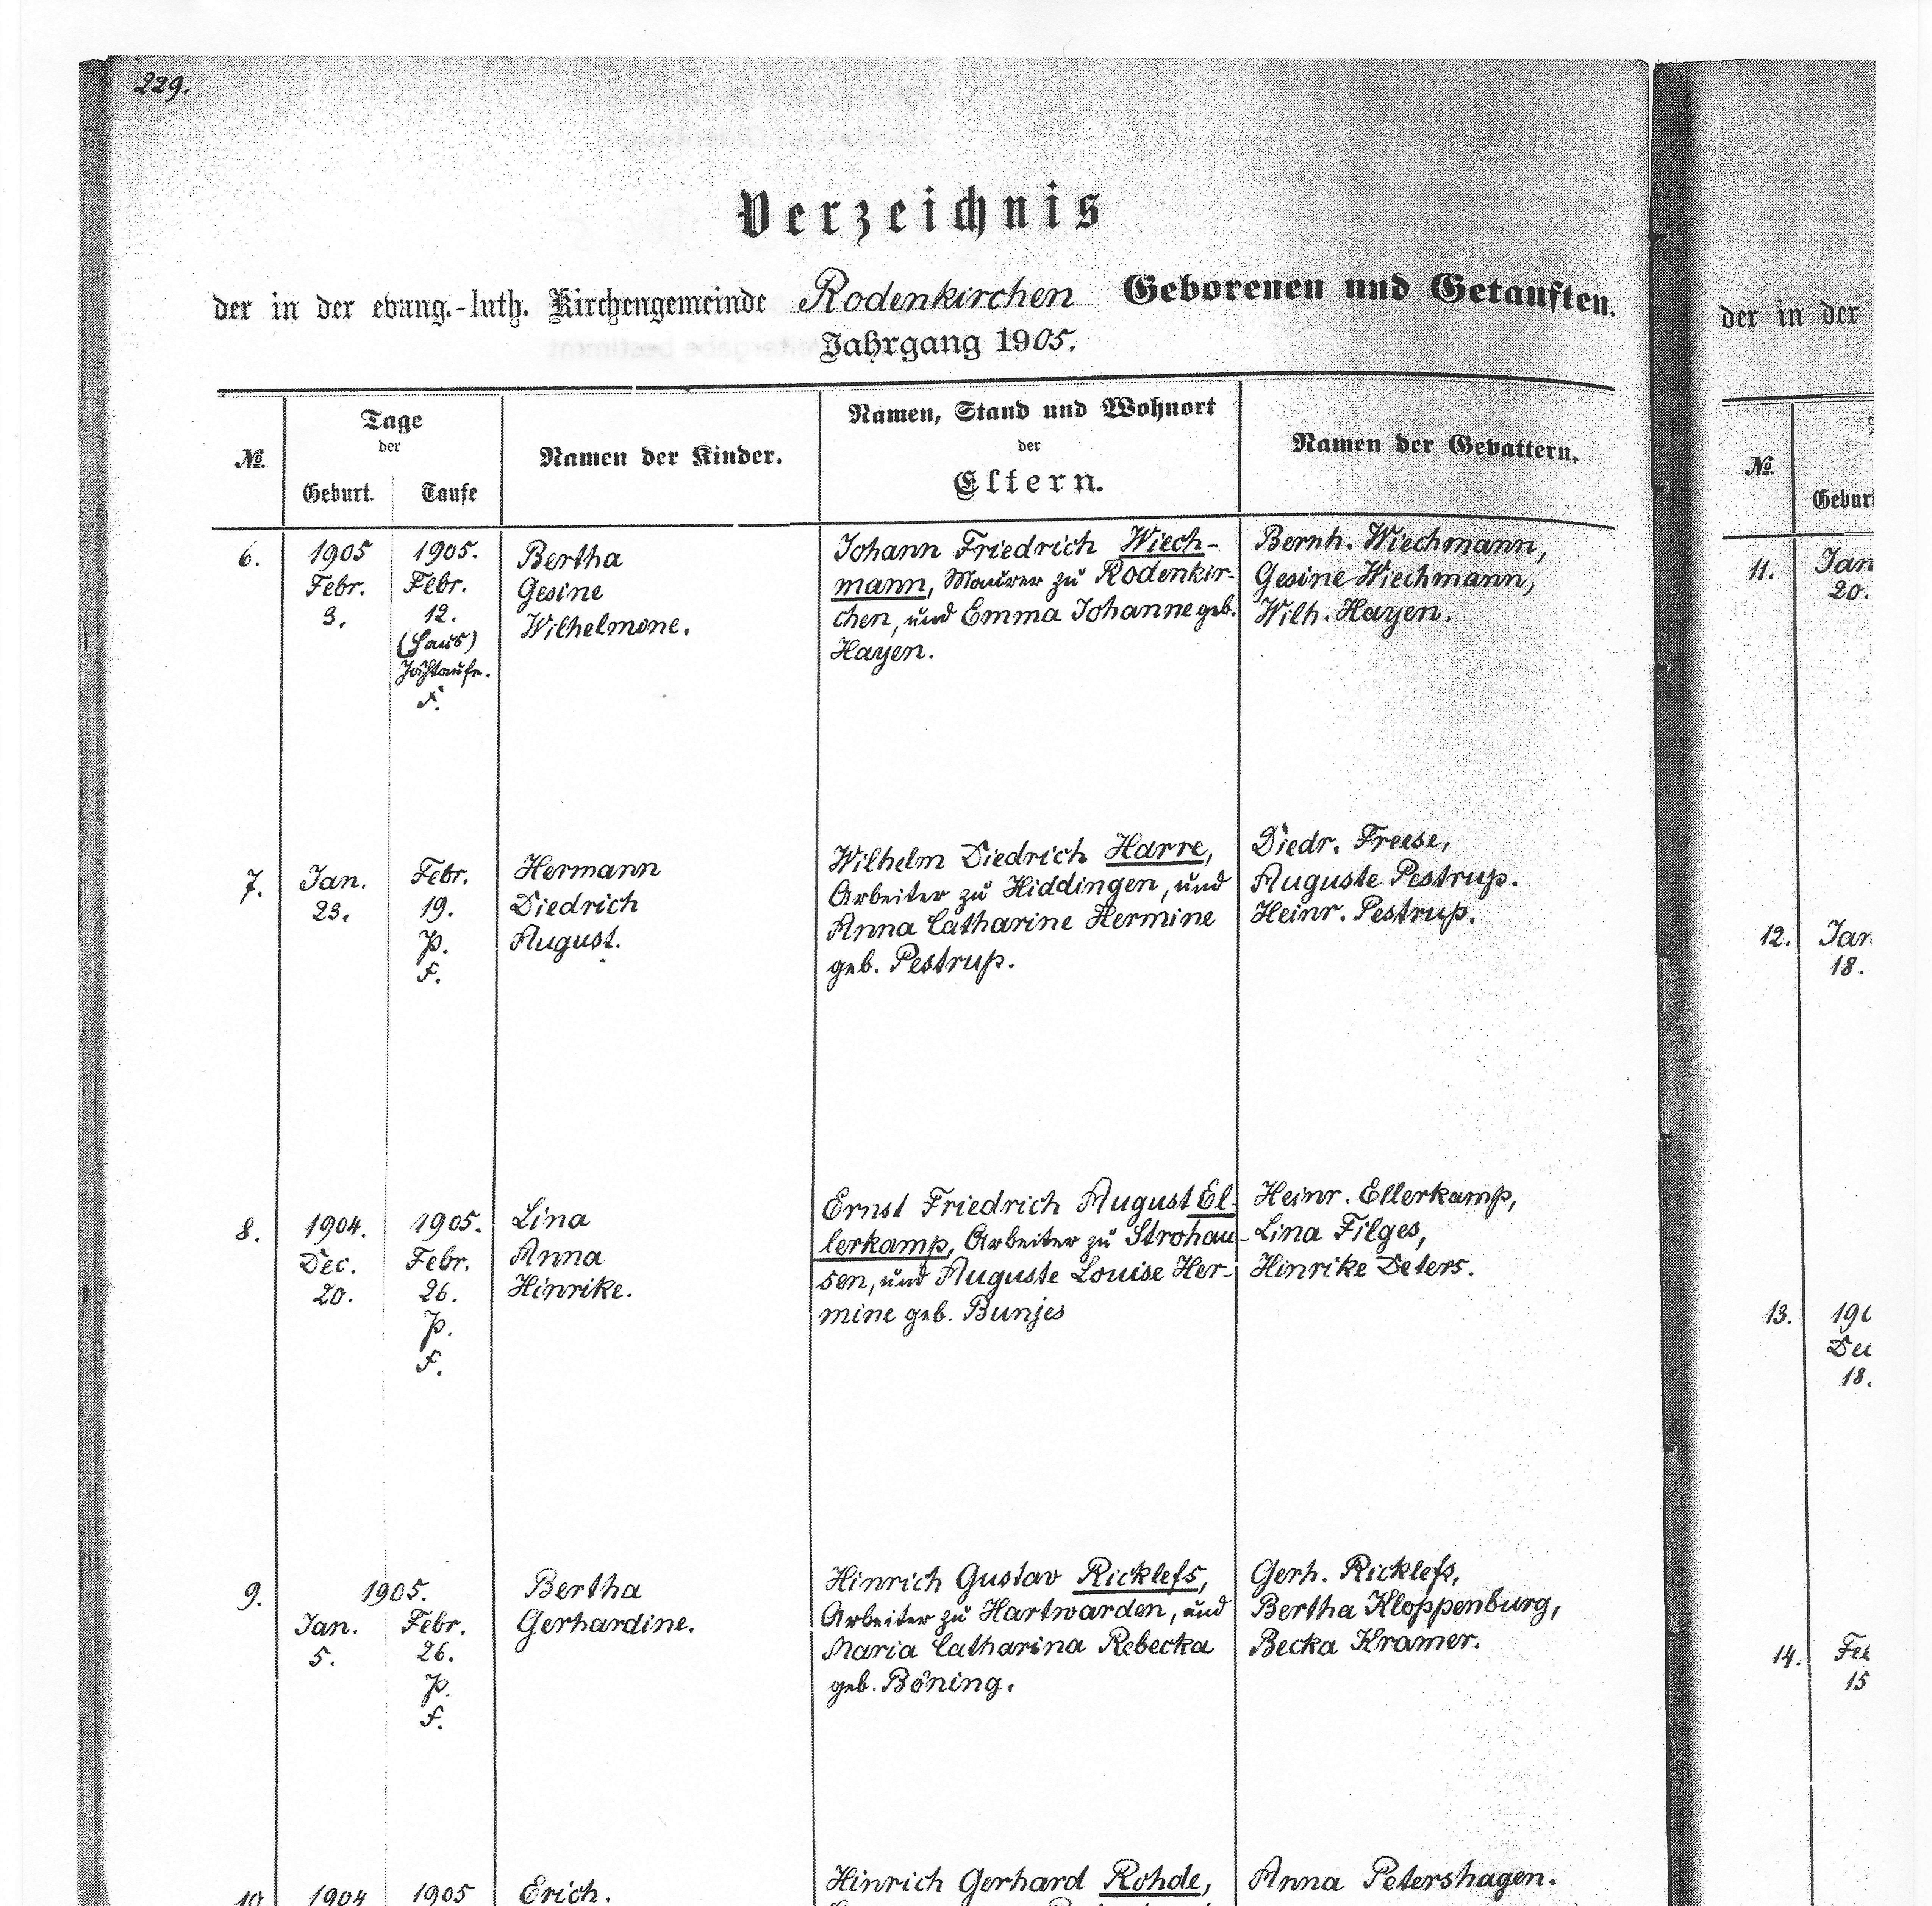 229.
Verzeichnis
der in der evang.-luth. Kirchengemeinde Rodenkirchen Geborenen und Getauften.
Jahrgang 1905.
№.
Tage
der
Geburt. Taufe
Namen der Kinder.
Namen, Stand und Wohnort
der
Eltern.
Namen der Gevattern.
6.
1905
Febr.
3.
1905.
Febr.
12.
(Haus)
Jähtaufe.
F.
Bertha
Gesine
Wilhelmone.
Johann Friedrich Wiech-
mann, Maurer zu Rodenkir-
chen, und Emma Johanne geb.
Hayen.
Bernh. Wiechmann,
Gesine Wiechmann,
Wilh. Hayen.
7.
Jan.
23.
Febr.
19.
p.
F.
Hermann
Diedrich
August.
Wilhelm Diedrich Harre,
Arbeiter zu Hiddingen, und
Anna Catharine Hermine
geb. Pestrup.
Diedr. Freese,
Auguste Pestrup.
Heinr. Pestrup.
8.
1904.
Dec.
20.
1905.
Febr.
26.
p.
F.
Lina
Anna
Hinrike.
Ernst Friedrich August El-
lerkamp, Arbeiter zu Strohau-
sen, und Auguste Louise Her-
mine geb. Bunjes
Heinr. Ellerkamp,
Lina Filges,
Hinrike Deters.
9.
1905.
Jan.
5.
Febr.
26.
p.
F.
Bertha
Gerhardine.
Hinrich Gustav Ricklefs,
Arbeiter zu Hartwarden, und
Maria Catharina Rebecka
geb. Böning.
Gerh. Ricklefs,
Bertha Kloppenburg,
Becka Kramer.
10
1904
1905
Erich.
Hinrich Gerhard Rohde,
Anna Petershagen.
der in der
№.
Gebur
11.
Jan
20.
12.
Jan
18.
13.
190
De
18.
14.
Fe
15